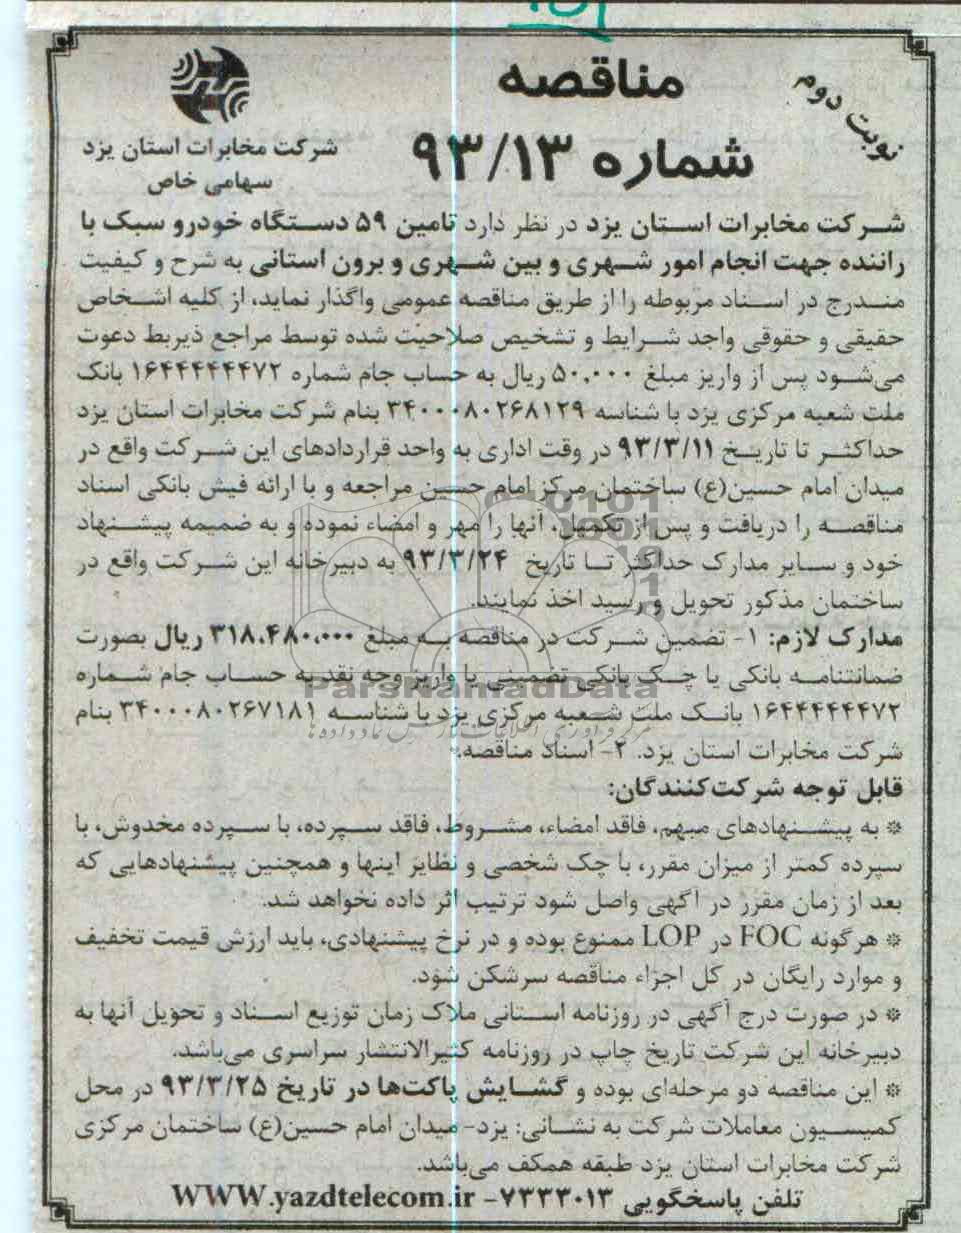 نوبت دوم
مناقصه
شماره ۹۳/۱۳
شرکت مخابرات استان یزد
سهامی خاص
شرکت مخابرات استان یزد در نظر دارد تامین ۵۹ دستگاه خودرو سبک با
راننده جهت انجام امور شهری و بین شهری و برون استانی به شرح و کیفیت
مندرج در اسناد مربوطه را از طریق مناقصه عمومی واگذار نماید، از کلیه اشخاص
حقیقی و حقوقی واجد شرایط و تشخیص صلاحیت شده توسط مراجع ذیربط دعوت
می‌شود پس از واریز مبلغ ۵۰,۰۰۰ ریال به حساب جام شماره ۱۶۴۴۴۴۴۴۷۲ بانک
ملت شعبه مرکزی یزد با شناسه ۳۴۰۰۰۸۰۲۶۸۱۲۹ بنام شرکت مخابرات استان یزد
حداکثر تا تاریخ ۹۳/۳/۱۱ در وقت اداری به واحد قراردادهای این شرکت واقع در
میدان امام حسین(ع) ساختمان مرکز امام حسین مراجعه و با ارائه فیش بانکی اسناد
مناقصه را دریافت و پس از تکمیل، آنها را مهر و امضاء نموده و به ضمیمه پیشنهاد
خود و سایر مدارک حداکثر تا تاریخ ۹۳/۳/۲۴ به دبیرخانه این شرکت واقع در
ساختمان مذکور تحویل و رسید اخذ نمایند.
مدارک لازم: ۱- تضمین شرکت در مناقصه به مبلغ ۳۱۸،۴۸۰،۰۰۰ ریال بصورت
ضمانتنامه بانکی یا چک بانکی تضمینی یا واریز وجه نقد به حساب جام شماره
۱۶۴۴۴۴۴۴۷۲ بانک ملت شعبه مرکزی یزد با شناسه ۳۴۰۰۰۸۰۲۶۷۱۸۱ بنام
شرکت مخابرات استان یزد. ۲- اسناد مناقصه.
قابل توجه شرکت‌کنندگان:
* به پیشنهادهای مبهم، فاقد امضاء، مشروط، فاقد سپرده، با سپرده مخدوش، با
سپرده کمتر از میزان مقرر، با چک شخصی و نظایر اینها و همچنین پیشنهادهایی که
بعد از زمان مقرر در آگهی واصل شود ترتیب اثر داده نخواهد شد.
* هرگونه FOC در LOP ممنوع بوده و در نرخ پیشنهادی، باید ارزش قیمت تخفیف
و موارد رایگان در کل اجزاء مناقصه سرشکن شود.
* در صورت درج آگهی در روزنامه استانی ملاک زمان توزیع اسناد و تحویل آنها به
دبیرخانه این شرکت تاریخ چاپ در روزنامه کثیرالانتشار سراسری می‌باشد.
* این مناقصه دو مرحله‌ای بوده و گشایش پاکت‌ها در تاریخ ۹۳/۳/۲۵ در محل
کمیسیون معاملات شرکت به نشانی: یزد- میدان امام حسین(ع) ساختمان مرکزی
شرکت مخابرات استان یزد طبقه همکف می‌باشد.
تلفن پاسخگویی ۷۲۳۳۰۱۳- WWW.yazdtelecom.ir
ParsNamadData